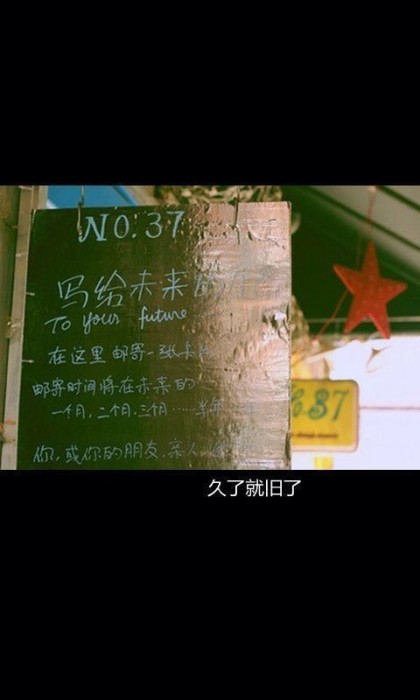 NO.37
写给未来的
To your future
在这里邮寄一张卡
邮寄时间将在未来的
一个月,二个月,三个月……半年
你,或你的朋友,亲人
.37
久了就旧了